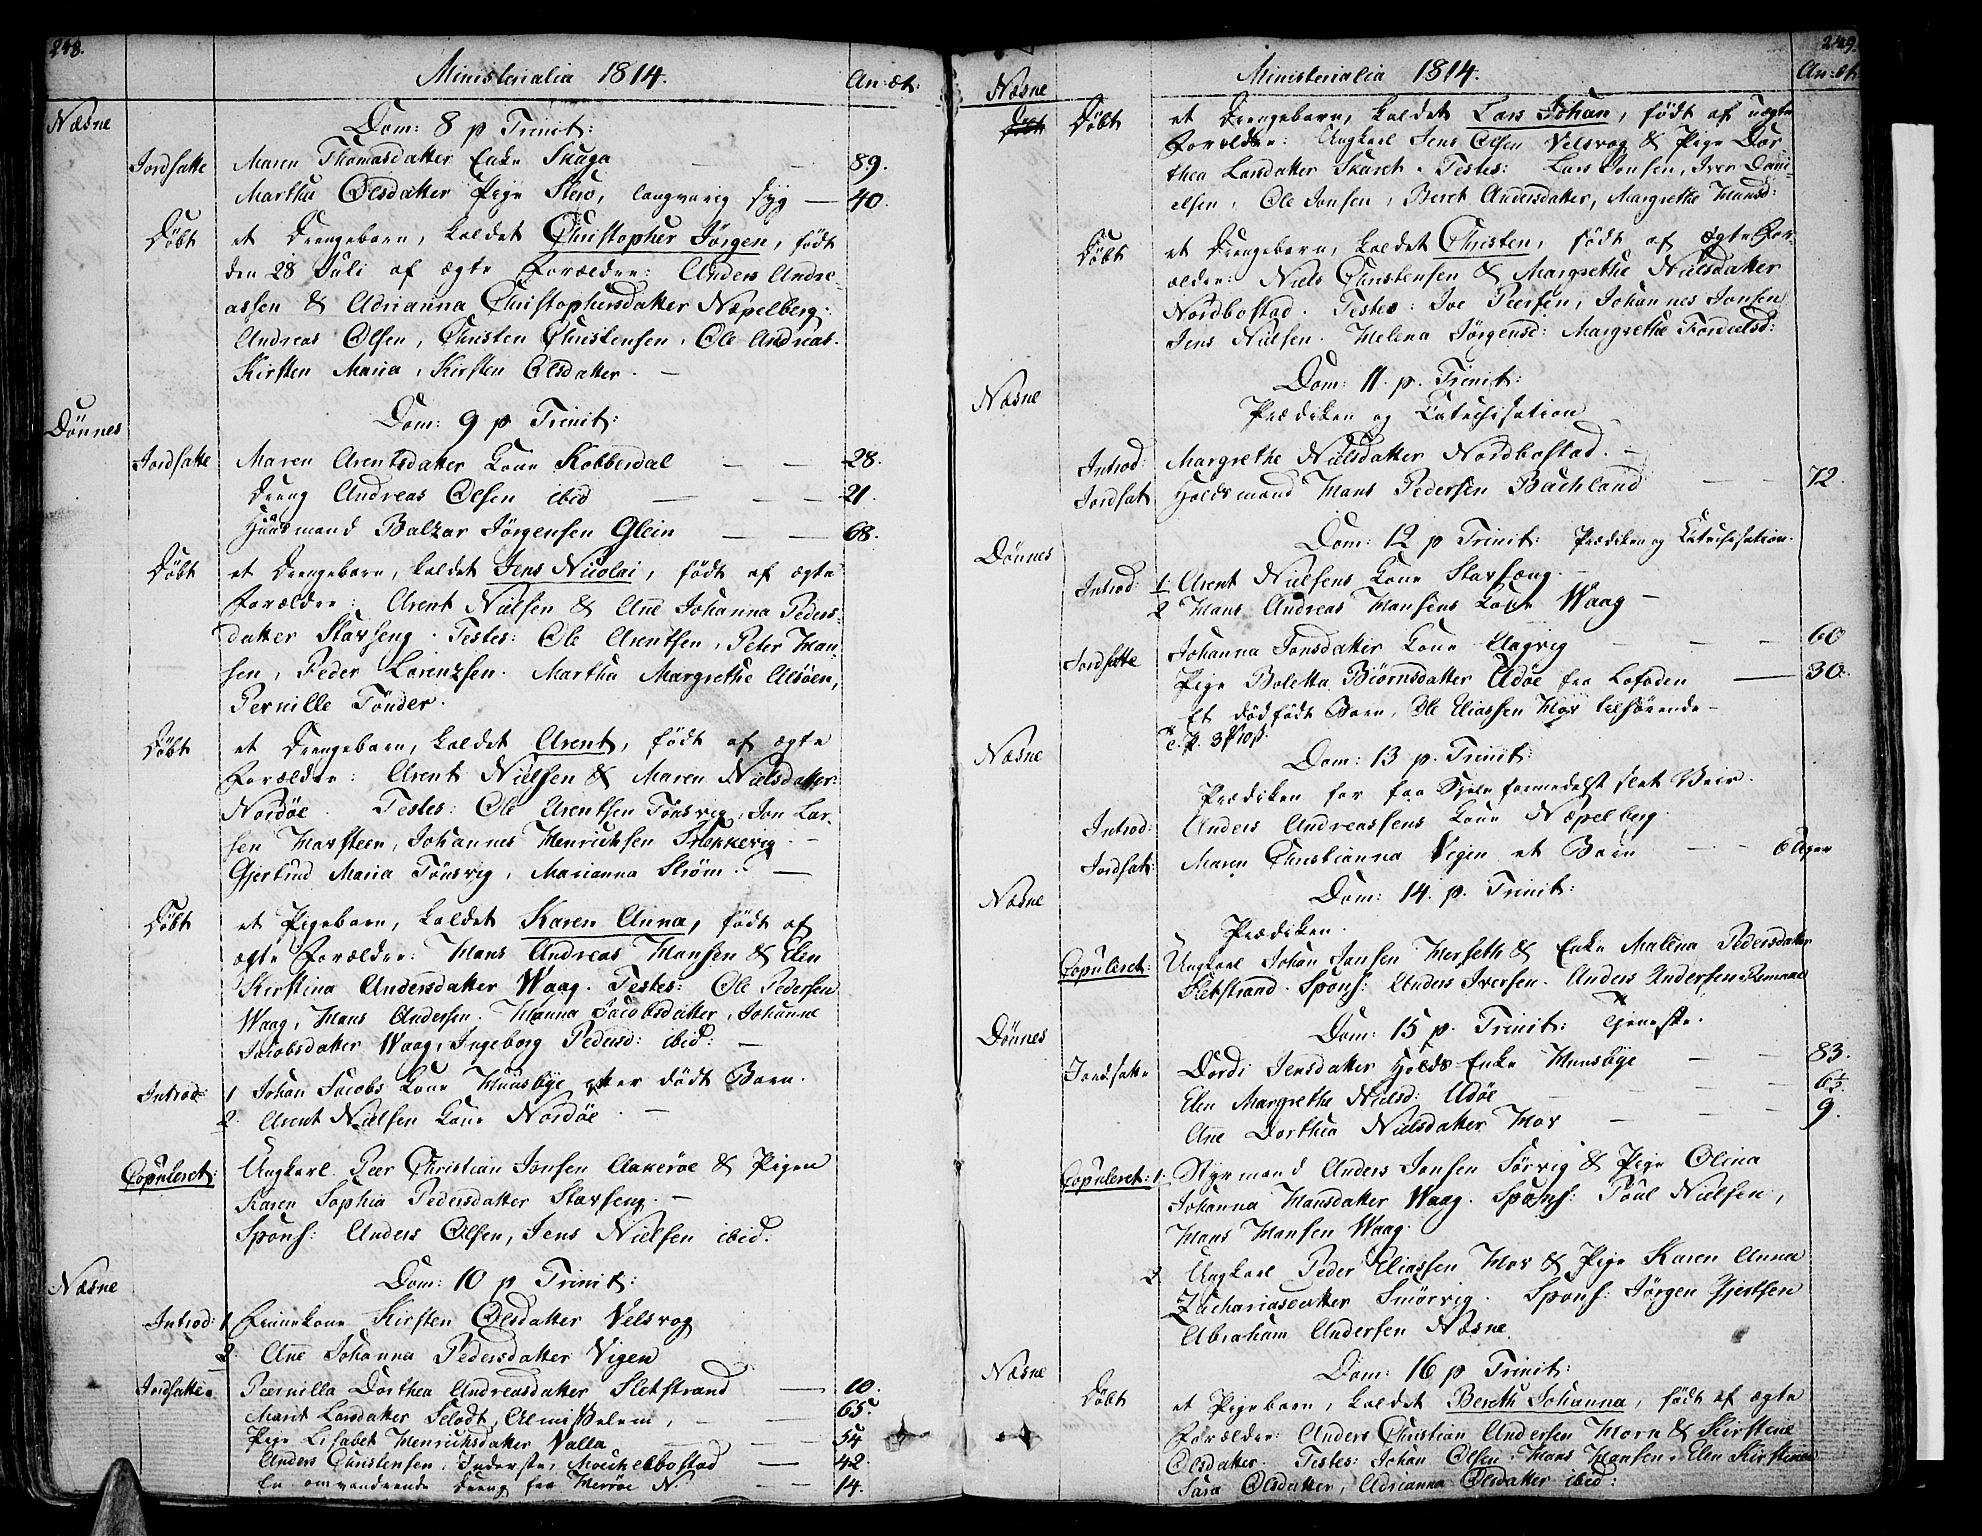 248.
Ministerialia 1814.
An: æt:
Næsne
Dom: 8 p Trinit:
Jordfatte Maren Thomasdatter Enke Skaga — 89.
Martha Olsdatter Pige langvarig syg — 40.
Döbt et Drengebarn, kaldet Christopher Jörgen, födt
den 28 Juli af ægte Forældre: Anders Andre-
assen & Adrianna Christophersdatter Næpelberg.
Andreas Olsen, Christen Christensen, Ole Andreas.
Kirsten Maria, Kirsten Olsdatter. —
Dönnes
Dom: 9 p Trinit:
Jordfatte Maren Arentsdatter Kone Kobberdal — — 28.
Dreng Andreas Olsen ibid — — 21.
Huusmand Balzar Jörgensen Glein — — 68.
Döbt et Drengebarn, kaldet Jens Nicolai, födt af ægte
Forældre: Arent Nielsen & Ane Johanna Peders-
datter Stavseng. Testes: Ole Arentsen, Peter Han-
sen, Peder Lorentzsen. Martha Margrethe Alsöen,
Pernille Tönder.
Döbt et Drengebarn, kaldet Arent, födt af ægte
Forældre: Arent Nielsen & Maren Nielsdatter
Nordöe. Testes: Ole Arentsen Tönsvig, Jon Lar-
sen Havsteen, Johannes Henrichsen —
Gjertrud Maria Tönsvig, Marianna Ström. —
Döbt et Pigebarn, kaldet Karen Anna, födt af
ægte Forældre: Hans Andreas Hansen & Elen
Kirstina Andersdatter Waag. Testes: Ole Pedersen
Waag, Hans Andersen. Hanna Jacobsdatter, Johanne
Jacobsdatter Waag, Ingeborg Pedersd: ibid: —
Introd: 1 Johan Jacobs Kone Huusbye efter dödt Barn.
2. Arent Nielsen Kone Nordöe. —
Copuleret: Ungkarl Peer Christian Jonsen Aakeröe & Pigen
Karen Sophia Pedersdatter Stavseng. —
Spons: Anders Olsen, Jens Nielsen ibid.
Næsne
Dom: 10 p Trinit:
Introd: 1. Finnekone Kirsten Olsdatter Velsvog
2. Ane Johanna Pedersdatter Vigen
Jordfatte. Pernilla Dorthea Andreasdatter Sletstrand — 10.
Marit Larsdatter — 65.
Pige Lisabet Henrichsdatter Valla — 54
Anders Christensen, Inderste, — 42.
En omvandrende Dreng fra N. — 14.
249.
Næsne
Ministerialia 1814.
An: æt.
Döbt et Drengebarn, kaldet Lars Johan, födt af uægte
Forældre: Ungkarl Jens Olsen Velsvog & Pige Dor-
thea Larsdatter Skaret. Testes: Lars Jonsen, Iver Dani-
elsen, Ole Jonsen, Beret Andersdatter, Margrethe Hansd:
Döbt et Drengebarn, kaldet Christen, födt af ægte For-
ældre: Niels Christensen & Margrethe Nielsdatter
Nordbostad. Testes: Peersen, Johannes Jonsen
Jens Nielsen. Helena Jörgensd: Margrethe
Næsne
Dom: 11. p. Trinit:
Prædiken og Catechisation
Introd: Margrethe Nielsdatter Nordbostad. —
Jordfat Hans Pedersen Bachland — — 72.
Dönnes
Dom: 12 p Trinit: Prædiken og Catechisation.
Introd: 1. Arent Nielsens Kone Stavseng. —
2 Hans Andreas Hansens Kone Waag —
Jordfatte Johanna Jonsdatter Kone — — 60
Pige Boletta Biörnsdatter fra Lofoden — 30.
Et dödfödt Barn, Ole Eliassen Hov tilhörende —
Næsne
Dom: 13 p. Trinit:
Prædiken for faa Siele formedelst slet Veir.
Introd: Anders Andreassens Kone Næpelberg.
Jordfat: Maren Christianna Vigen et Barn —
Næsne
Dom: 14. p. Trinit:
Prædiken.
Copuleret: Ungkarl Johan Jonsen & Enke Malena Pedersdatter
Sletstrand. Spons: Anders Iversen. Anders Andersen
Dönnes
Dom: 15 p. Trinit: Tjeneste.
Jordfatte Dordi Jensdatter Enke Huusbye — — 83.
Elen Margrethe Nielsd: — 6½
Ane Dorthea Nielsdatter Hov — — 9.
Copuleret: 1. Styrmand Anders Jonsen Sörvig & Pige Olina
Johanna Hansdatter Waag. Spons: Poul Nielsen,
Hans Hansen Waag.
2 Ungkarl Peder Eliassen Hov & Pige Karen Anna
Zachariasdatter Smörvig. Spons: Jörgen Gjertsen
Abraham Andersen Næsne.
Næsne
Dom: 16 p Trinit:
Döbt et Pigebarn, kaldet Bereth Johanna, födt af ægte
Forældre: Anders Christian Andersen Horn & Kirstene
Olsdatter. Testes: Johan Olsen, Hans Hansen, Elen Kirstine
Sara Olsdatter, Adrianna Olsdatter ibid: